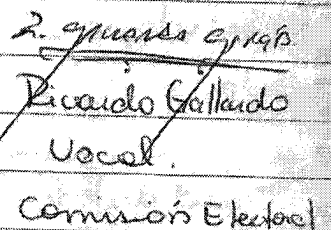 2.
Ricardo Gallardo
Vocal.
Comisión Electoral